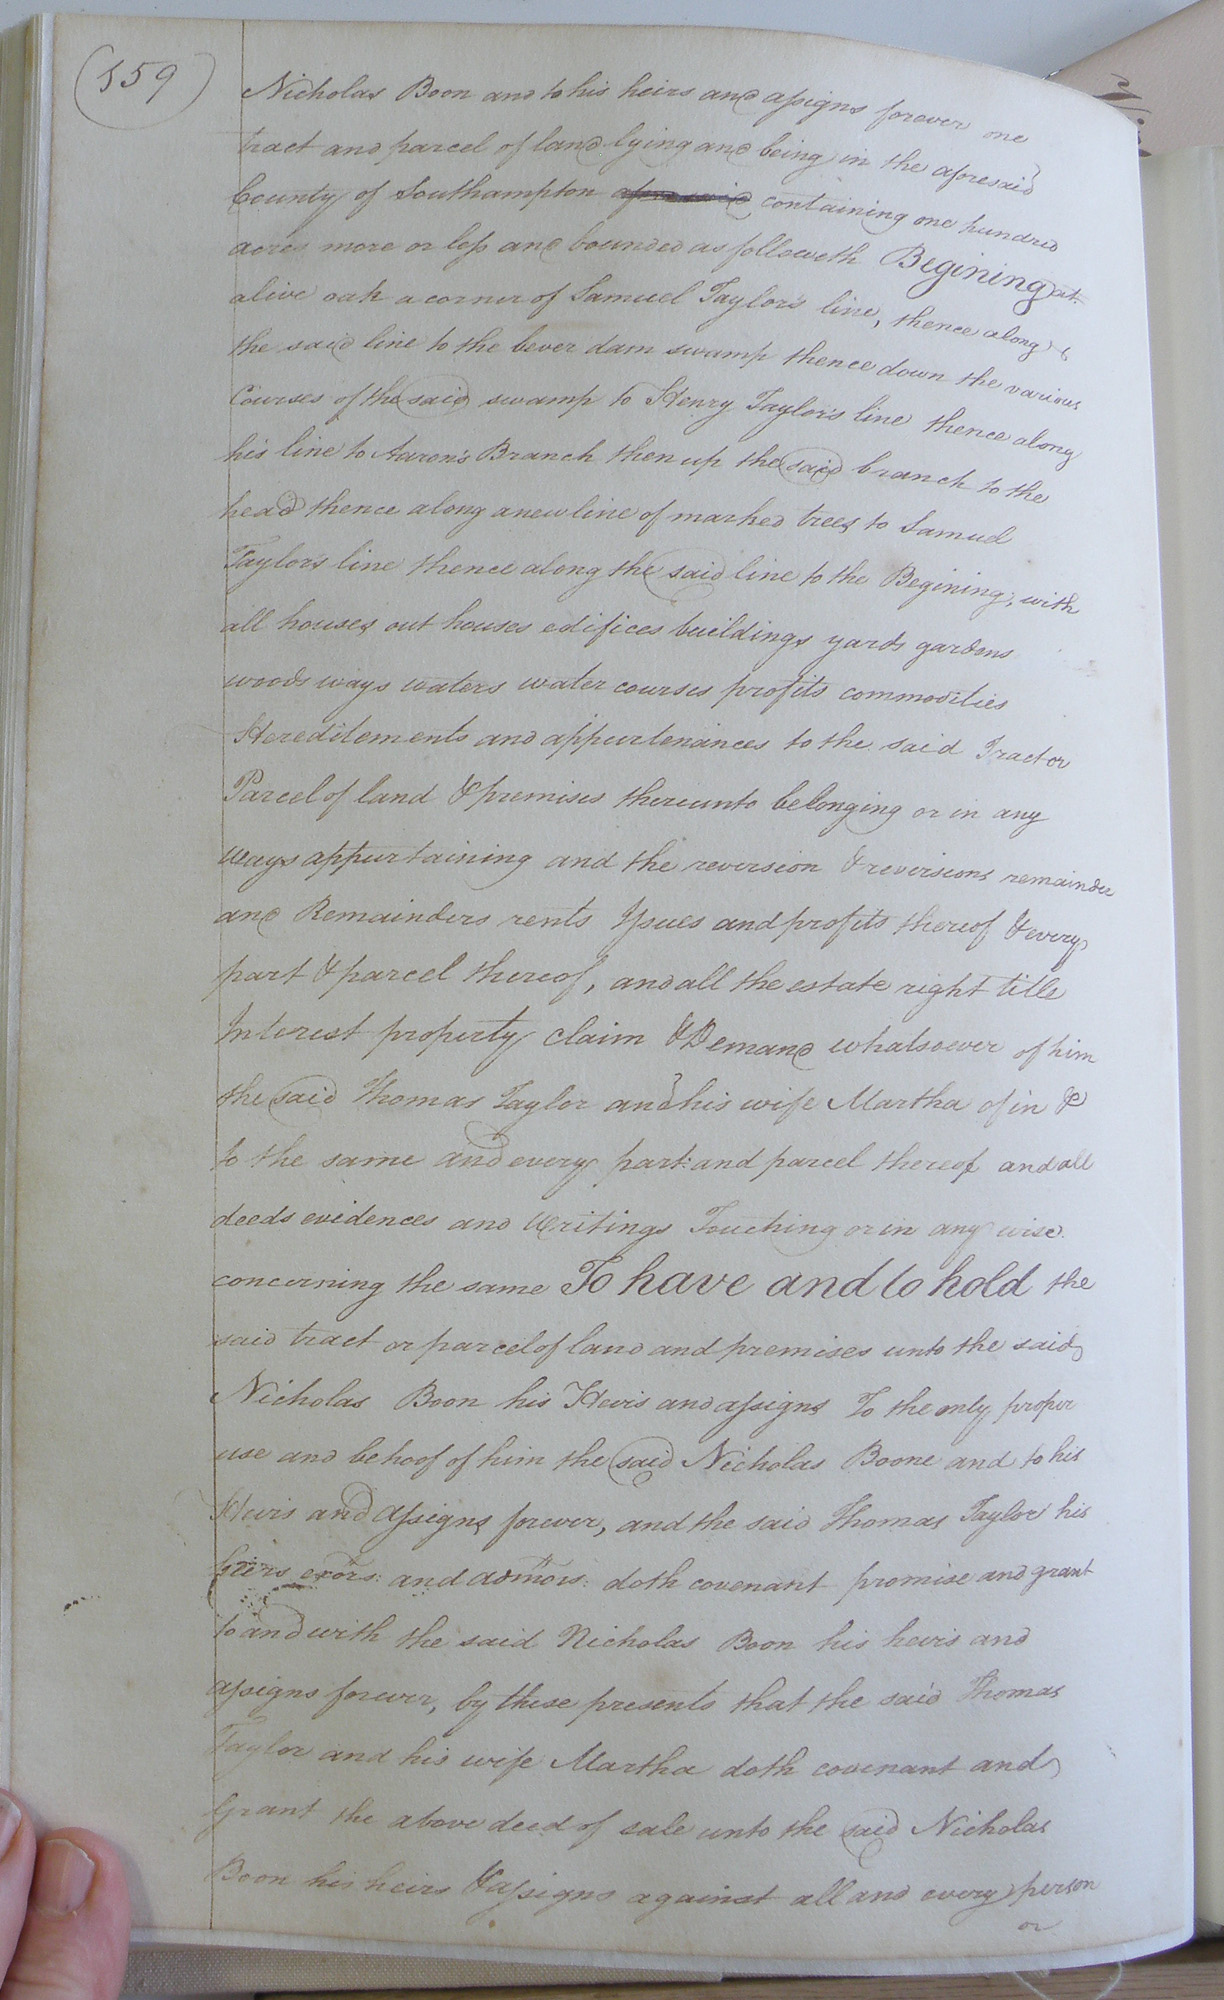 (559)
Nicholas Boon and to his heirs and assigns forever one
tract and parcel of land lying and being in the aforesaid
County of Southampton aforesaid containing one hundred
acres more or less and bounded as followeth Begining at
alive oak a corner of Samuel Taylor's line, thence along
the said line to the bever dam swamp thence down the various
Courses of the said swamp to Henry Taylor's line thence along
his line to Aaron's Branch then up the said branch to the
head thence along a new line of marked trees to Samuel
Taylors line thence along the said line to the Begining, with
all houses out houses edifices buildings yards gardens
woods ways waters water courses profits commodities
Hereditements and appurtenances to the said Tract or
Parcel of land & premises thereunto belonging or in any
ways appurtaining and the reversion & reversions remainder
and Remainders rents Issues and profits thereof & every
part & parcel thereof, and all the estate right title
Interest property claim & Demand whatsoever of him
the said Thomas Taylor and his wife Martha of in &
to the same and every part and parcel thereof and all
deeds evidences and Writings Touching or in any wise
concerning the same To have and to hold the
said tract or parcel of land and premises unto the said
Nicholas Boon his Heirs and assigns To the only proper
use and behoof of him the said Nicholas Boone and to his
Heirs and assigns forever, and the said Thomas Taylor his
heirs exors: and admors: doth covenant promise and grant
to and with the said Nicholas Boon his heirs and
assigns forever, by these presents that the said Thomas
Taylor and his wife Martha doth covenant and
Grant the above deed of sale unto the said Nicholas
Boon his heirs & assigns against all and every person
or